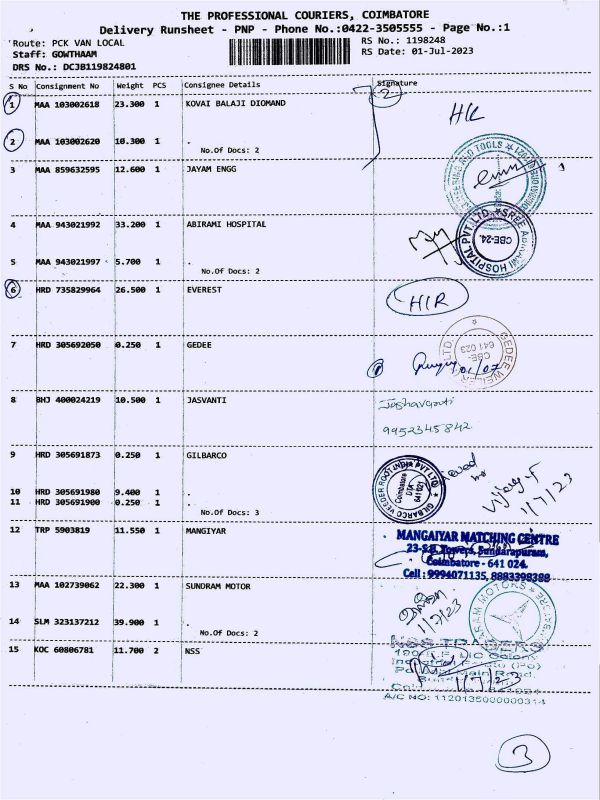 THE PROFESSIONAL COURIERS, COIMBATORE
Delivery Runsheet - PNP - Phone No.:0422-3505555 - Page No.:1
Route: PCK VAN LOCAL
RS No.: 1198248
Staff: GOWTHAAM
RS Date: 01-Jul-2023
DRS No.: DCJB119824801
S No Consignment No Weight PCS Consignee Details Signature
2
1 MAA 103002618 23.300 1 KOVAI BALAJI DIOMAND
2 MAA 103002620 10.300 1 .
No.Of Docs: 2
3 MAA 859632595 12.600 1 JAYAM ENGG
4 MAA 943021992 33.200 1 ABIRAMI HOSPITAL
CBE-24.
5 MAA 943021997 5.700 1 .
No.Of Docs: 2
6 HRD 735829964 26.500 1 EVEREST
7 HRD 305692050 0.250 1 GEDEE
CBE-
641 023
8 BHJ 400024219 10.500 1 JASVANTI
9952345842
9 HRD 305691873 0.250 1 GILBARCO
GILBARCO VEEDER ROOT INDIA PVT LTD
Coimbatore
641 021
10 HRD 305691980 9.400 1 .
11 HRD 305691900 0.250 1 .
No.Of Docs: 3
1/7/23
12 TRP 5903819 11.550 1 MANGIYAR
MANGAIYAR MATCHING CENTRE
Towers, Sundarapuram,
Coimbatore - 641 024.
Cell : 9994071135, 8883398388
13 MAA 102739062 22.300 1 SUNDRAM MOTOR
1/7/23
14 SLM 323137212 39.900 1 .
No.Of Docs: 2
15 KOC 60806781 11.700 2 NSS
NSS TRADERS
Main Road,
1/7/23
A/C NO: 1120135000000314
3